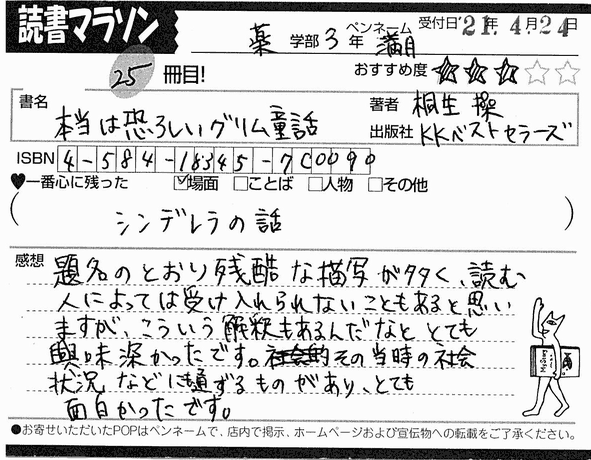 読書マラソン
薬 学部 3 年 ペンネーム 満月 受付日 '21年 4月 24日
25 冊目! おすすめ度 ★★★☆☆
書名 本当は恐ろしいグリム童話
著者 桐生 操
出版社 KKベストセラーズ
ISBN 4-584-18345-7C0090
♥一番心に残った ☑場面 □ことば □人物 □その他
( シンデレラの話 )
感想 題名のとおり残酷な描写が多く、読む
人によっては受け入れられないこともあると思い
ますが、こういう解釈もあるんだなと とても
興味深かったです。その当時の社会
状況などに通ずるものがあり、とても
面白かったです。
●お寄せいただいたPOPはペンネームで、店内で掲示、ホームページおよび宣伝物への転載をご了承ください。